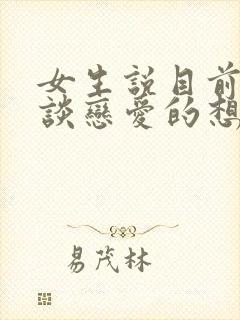 女生説目前
談戀愛的想
易茂林